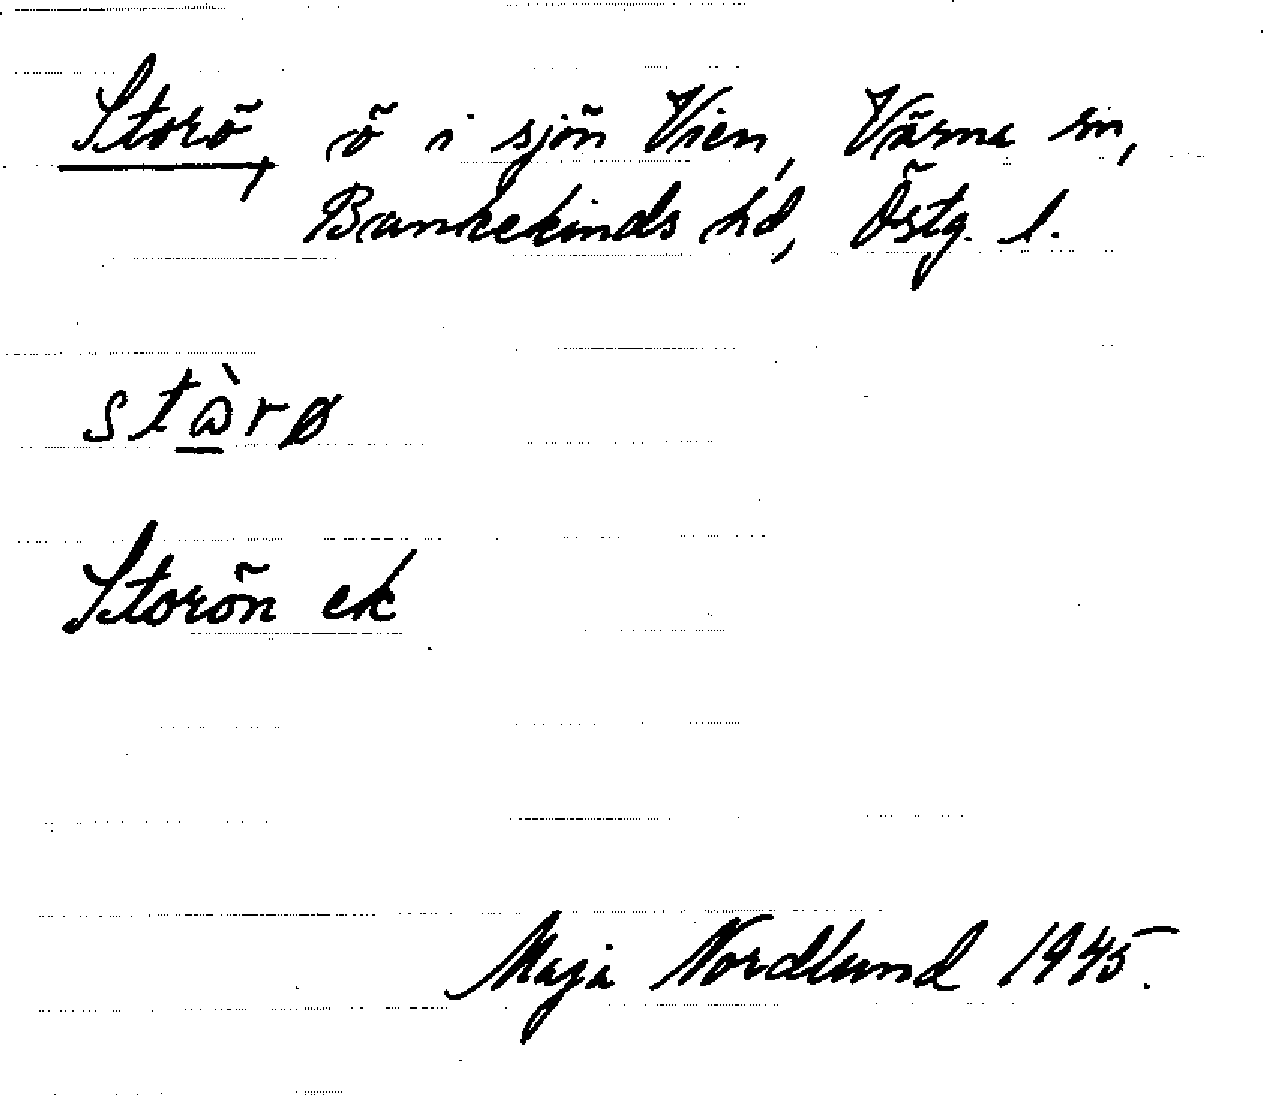 Storö, ö i sjön Vien, Värna sn,
Bankekinds hd, Östg. l.
stὰrø
Storön ek
Maja Nordlund 1945.